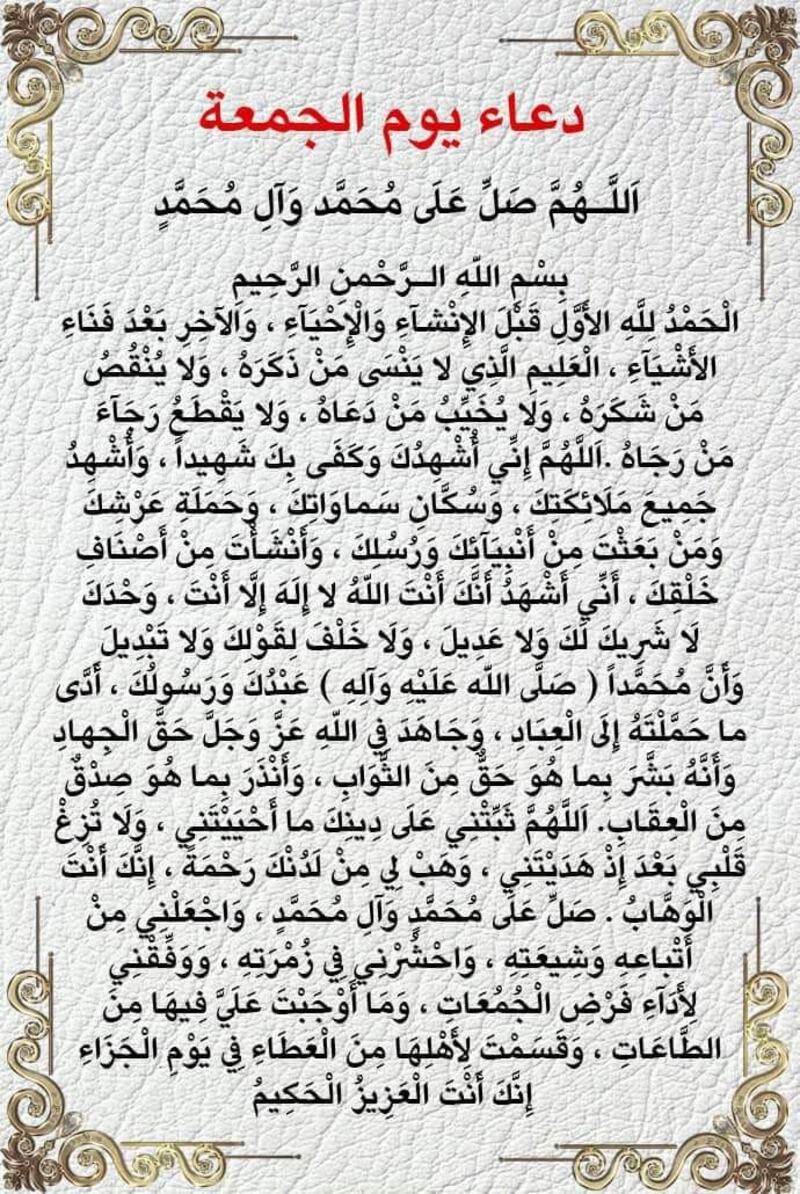 دعاء يوم الجمعة
اَللَّــهُمَّ صَلِّ عَلَى مُحَمَّد وَآلِ مُحَمَّدٍ
بِسْمِ اللّهِ الــرَّحْمنِ الرَّحِيمِ
الْحَمْدُ لِلَّهِ الأَوَّلِ قَبْلَ الإِنْشآءِ وَالْإِحْيَآءِ ، وَالآخِرِ بَعْدَ فَنَاءِ
الأَشْيَآءِ ، الْعَلِيمِ الَّذِي لا يَنْسَى مَنْ ذَكَرَهُ ، وَلا يُنْقُصُ
مَنْ شَكَرَهُ ، وَلَا يُخَيِّبُ مَنْ دَعَاهُ ، وَلا يَقْطَعُ رَجَآءَ
مَنْ رَجَاهُ .اَللَّهُمَّ إِنِّي أُشْهِدُكَ وَكَفَى بِكَ شَهِيداً ، وَأُشْهِدُ
جَمِيعَ مَلَائِكَتِكَ ، وَسُكَّانِ سَماوَاتِكَ ، وَحَمَلَةِ عَرْشِكَ
وَمَنْ بَعَثْتَ مِنْ أَنْبِيَآئِكَ وَرُسُلِكَ ، وَأَنْشَأْتَ مِنْ أَصْنَافِ
خَلْقِكَ ، أَنِّي أَشْهَدُ أَنَّكَ أَنْتَ اللّهُ لا إِلَهَ إِلَّا أَنْتَ ، وَحْدَكَ
لَا شَرِيكَ لَكَ وَلا عَدِيلَ ، وَلَا خَلْفَ لِقَوْلِكَ وَلا تَبْدِيلَ
وَأَنَّ مُحَمَّداً ( صَلَّى اللّه عَلَيْهِ وَآلِهِ ) عَبْدُكَ وَرَسُولُكَ ، أَدَّى
ما حَمَّلْتَهُ إِلَى الْعِبَادِ ، وَجَاهَدَ فِي اللّهِ عَزَّ وَجَلَّ حَقَّ الْجِهادِ
وَأَنَّهُ بَشَّرَ بِما هُوَ حَقٌّ مِنَ الثَّوَابِ ، وَأَنْذَرَ بِما هُوَ صِدْقٌ
مِنَ الْعِقَابِ. اَللَّهُمَّ ثَبِّتْنِي عَلَى دِينِكَ ما أَحْيَيْتَنِي ، وَلَا تُزِغْ
قَلْبِي بَعْدَ إِذْ هَدَيْتَنِي ، وَهَبْ لِي مِنْ لَدُنْكَ رَحْمَةً ، إِنَّكَ أَنْتَ
الْوَهَّابُ . صَلِّ عَلَى مُحَمَّدٍ وَآلِ مُحَمَّدٍ ، وَاجْعَلْنِي مِنْ
أَتْباعِهِ وَشِيعَتِهِ ، وَاحْشُرْنِي فِي زُمْرَتِهِ ، وَوَفِّقْنِي
لِأَدَآءِ فَرْضِ الْجُمُعَاتِ ، وَمَا أَوْجَبْتَ عَلَيَّ فِيهَا مِنَ
الطَّاعَاتِ ، وَقَسَمْتَ لِأَهْلِهَا مِنَ الْعَطَاءِ فِي يَوْمِ الْجَزَاءِ
إِنَّكَ أَنْتَ الْعَزِيزُ الْحَكِيمُ